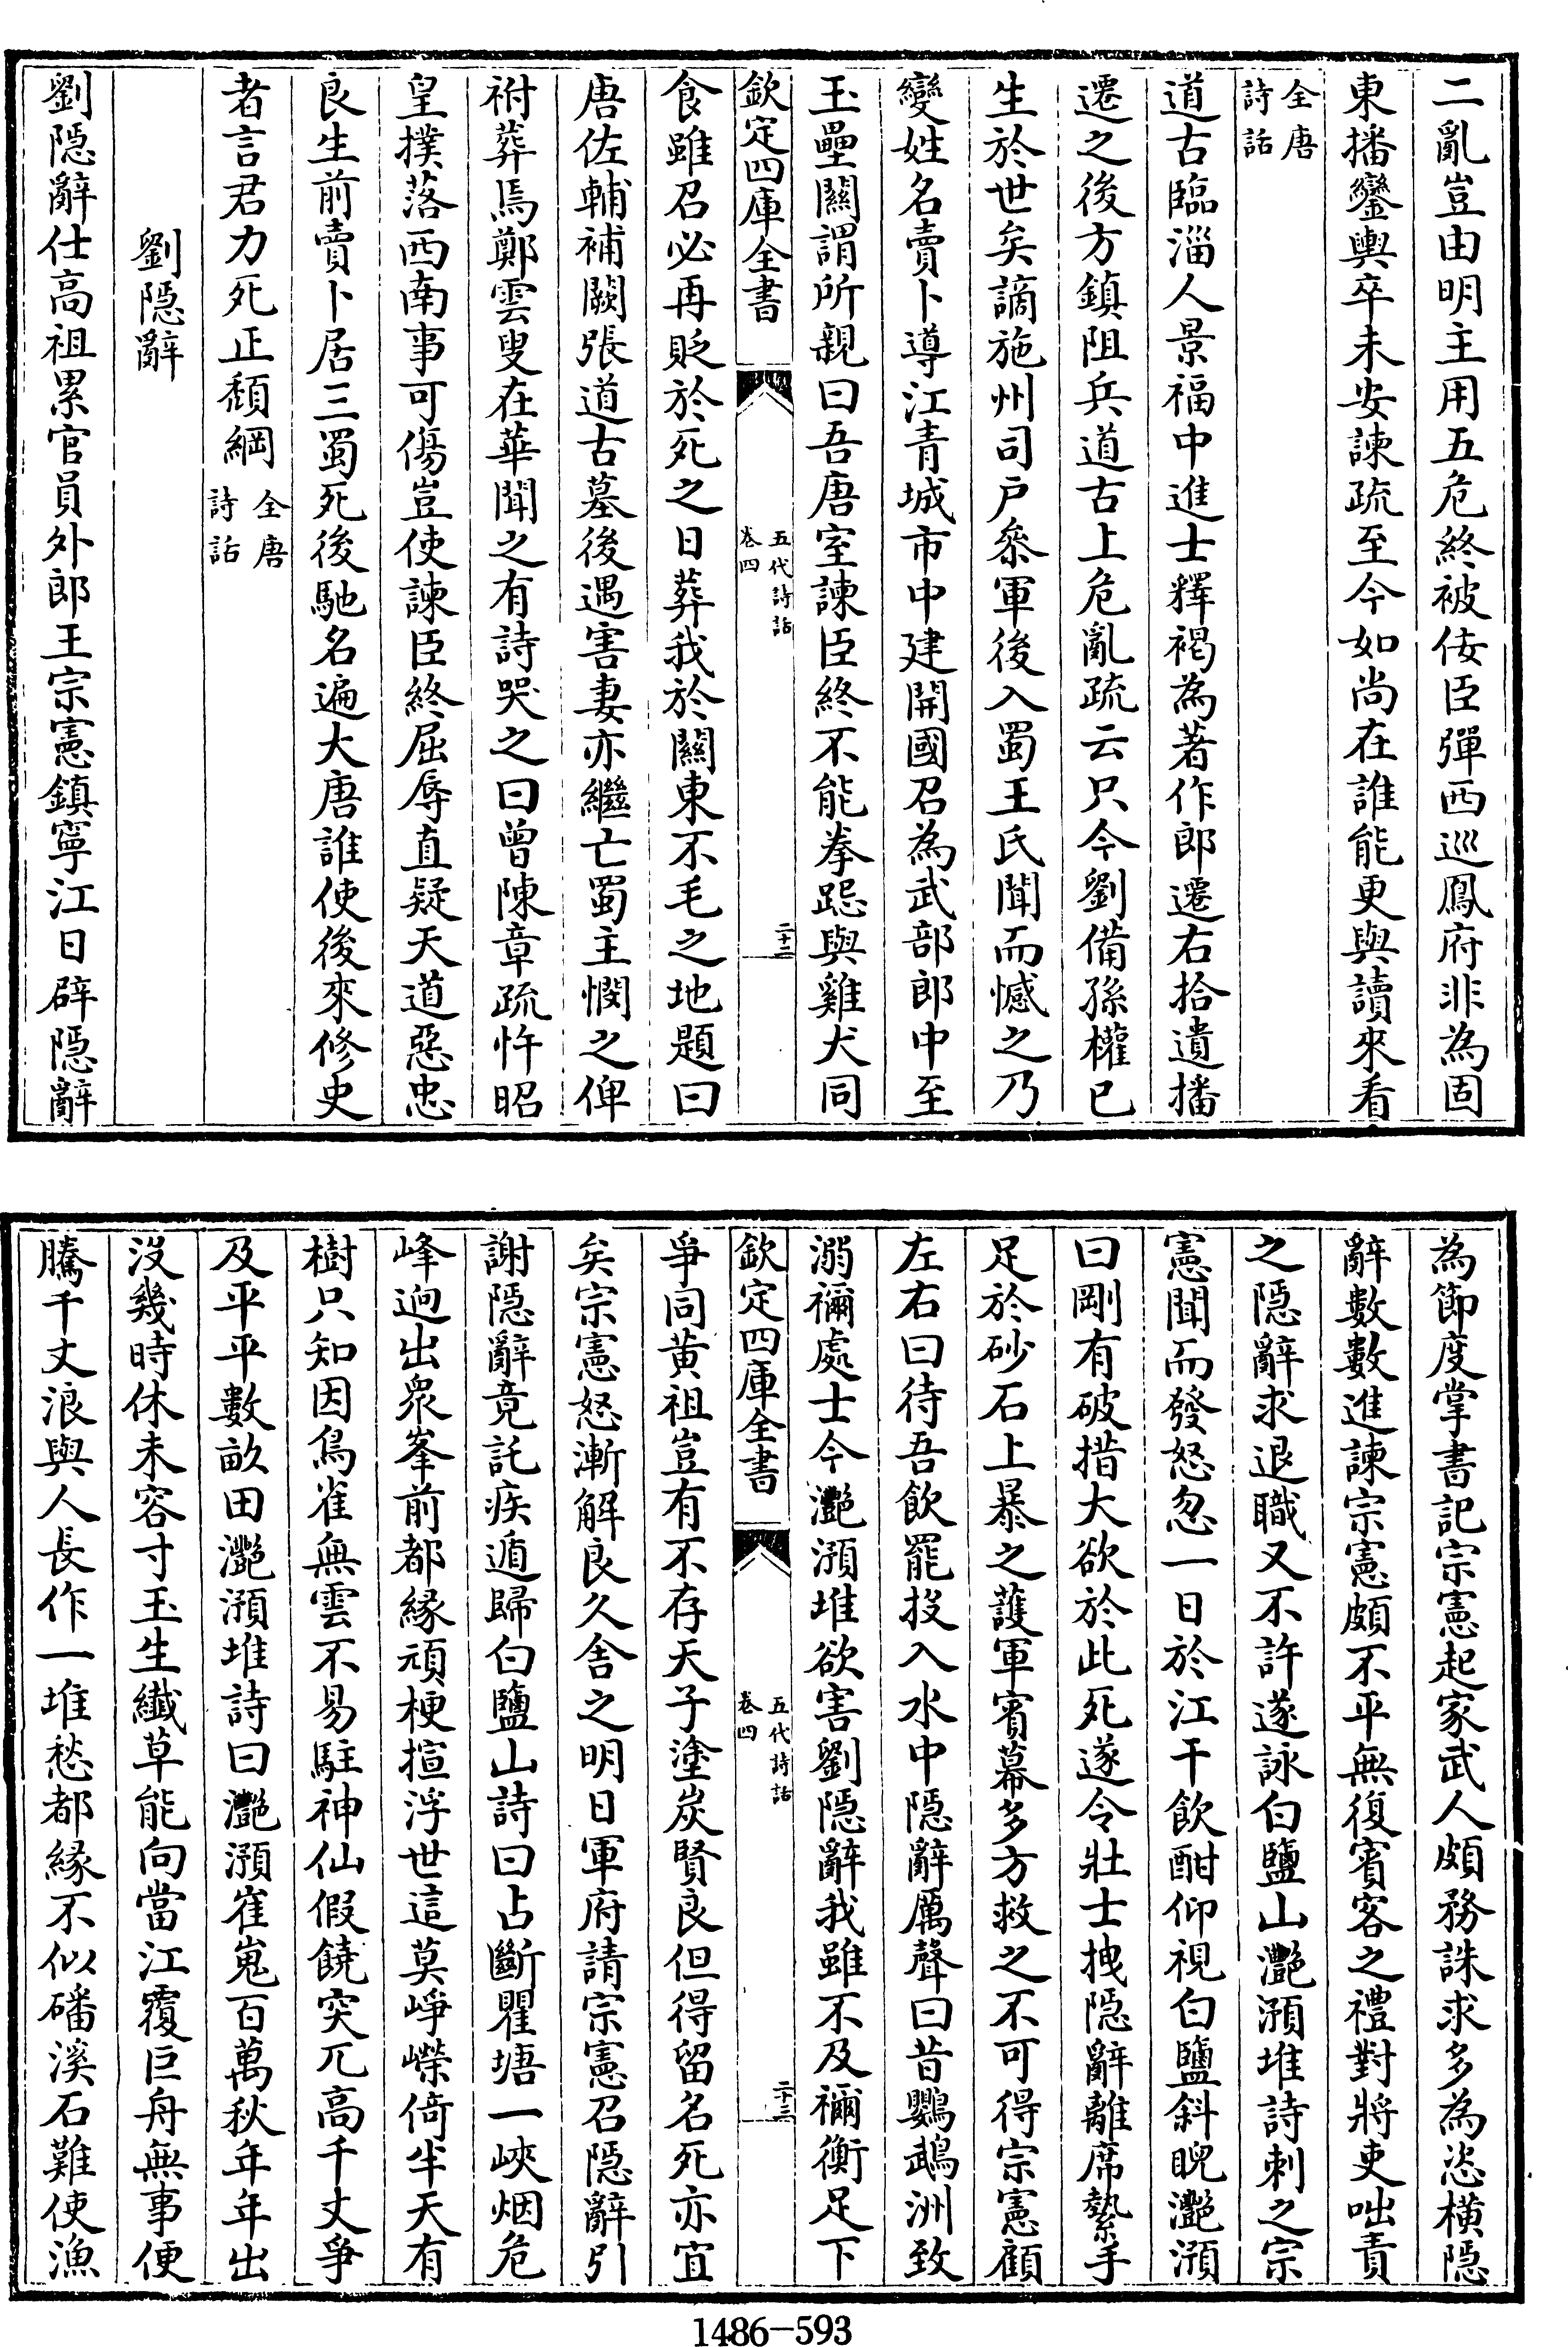 二亂豈由明主用五危終被佞臣彈西巡鳳府非為固
東播鑾輿卒未安諫疏至今如尚在誰能更與讀來看
全唐
詩話
道古臨淄人景福中進士釋褐為著作郎遷右拾遺播
遷之後方鎮阻兵道古上危亂疏云只今劉備孫權已
生於世矣謫施州司户叅軍後入蜀王氏聞而憾之乃
變姓名賣卜導江青城市中建開國召為武部郎中至
玉壘關謂所親曰吾唐室諫臣終不能拳跽與雞犬同
欽定四庫全書
五代詩話
卷四
二十二
食雖召必再貶於死之日葬我於關東不毛之地題曰
唐佐輔補闕張道古墓後遇害妻亦繼亡蜀主憫之俾
祔葬焉鄭雲叟在華聞之有詩哭之曰曾陳章疏忤昭
皇撲落西南事可傷豈使諫臣終屈辱直疑天道惡忠
良生前賣卜居三蜀死後馳名遍大唐誰使後來修史
者言君力死正頹綱
全唐
詩話
劉隠辭
劉隠辭仕高祖累官員外郎王宗憲鎮寧江日辟隠辭
為節度掌書記宗憲起家武人頗務誅求多為恣橫隠
辭數數進諫宗憲頗不平無復賓客之禮對將吏咄責
之隠辭求退職又不許遂詠白鹽山灔澦堆詩刺之宗
憲聞而發怒忽一日於江干飲酣仰視白鹽斜睨灔澦
曰剛有破措大欲於此死遂令壯士拽隠辭離席縶手
足於砂石上暴之䕶軍賓幕多方救之不可得宗憲顧
左右曰待吾飲罷投入水中隠辭厲聲曰昔鸚鵡洲致
溺禰處士今灔澦堆欲害劉隠辭我雖不及禰衡足下
欽定四庫全書
五代詩話
卷四
二十三
爭同黄祖豈有不存天子塗炭賢良但得留名死亦宜
矣宗憲怒漸解良久舍之明日軍府請宗憲召隠辭引
謝隠辭竟託疾遁歸白鹽山詩曰占斷瞿塘一峽烟危
峰逈出衆峯前都緣頑梗揎浮世這莫崢嶸倚半天有
樹只知因鳥雀無雲不易駐神仙假饒突兀高千丈爭
及平平數畝田灔澦堆詩曰灔澦崔嵬百萬秋年年出
沒幾時休未容寸玉生纖草能向當江覆巨舟無事便
騰千丈浪與人長作一堆愁都緣不似磻溪石難使漁
1486-593